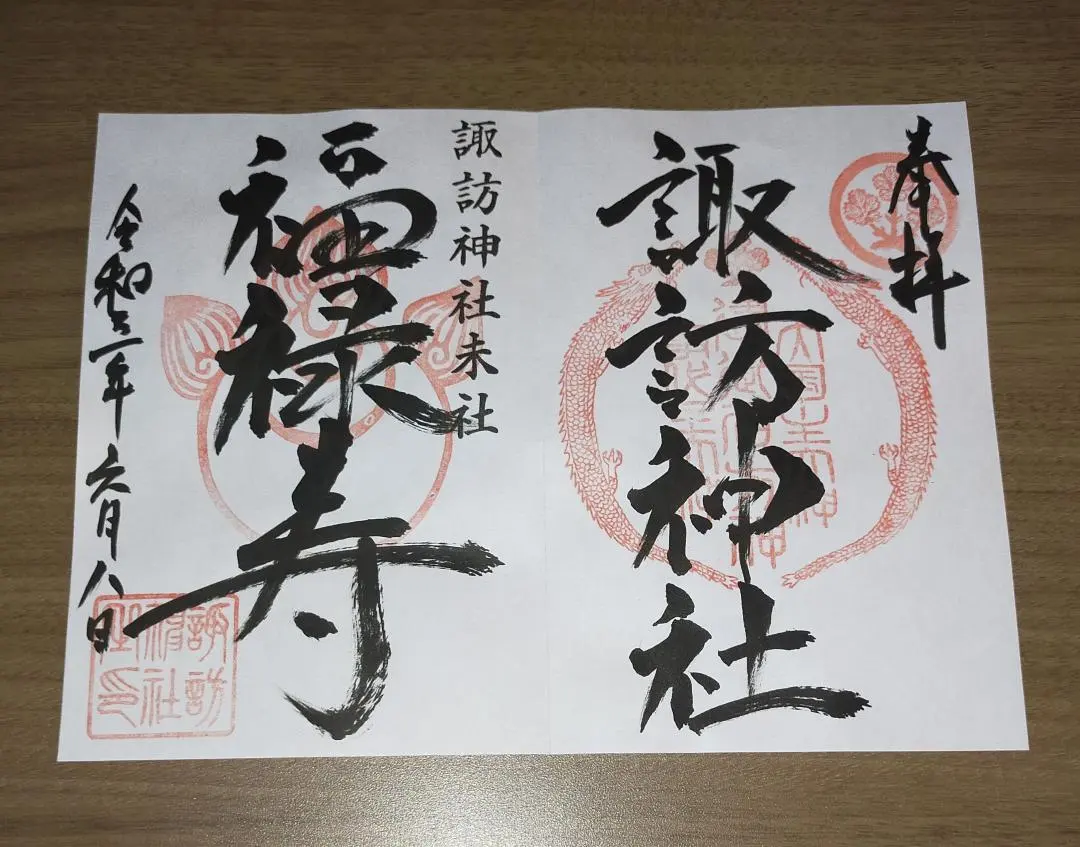 奉拝
諏訪神社
諏訪神社末社
福禄寿
令和三年 六月八日
諏訪
神社
之印